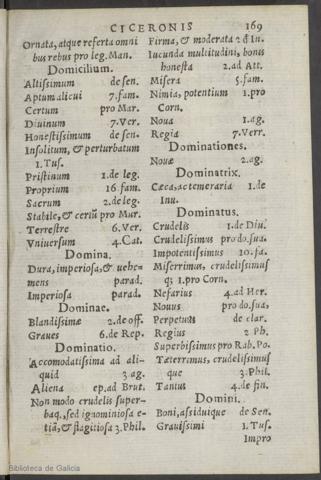 CICERONIS 169
Ornata, atque referta omni
bus rebus pro leg. Man.
Domicilium.
Altissimum de sen.
Aptum alicui 7. fam.
Certum pro Mar.
Diuinum 7. Ver.
Honestissimum de sen.
Insolitum, & perturbatum
1. Tus.
Pristinum 1. de leg.
Proprium 16. fam.
Sacrum 2. de leg.
Stabile, & certū pro Mur.
Terrestre 6. Ver.
Vniuersum 4. Cat.
Domina.
Dura, imperiosa, & uehe=
mens parad.
Imperiosa parad.
Dominae.
Blandissimæ 2. de off.
Graues 6. de Rep.
Dominatio.
Accomodatissima ad ali-
quid 3. ag.
Aliena ep. ad Brut.
Non modo crudelis super-
baq., sed ignominiosa e-
tiā, & flagitiosa 3. Phil.
Firma, & moderata 2 d In.
Iucunda multitudini, bonis
honesta 2. ad Att.
Misera 5. fam.
Nimia, potentium 1. pro
Corn.
Noua 1. ag.
Regia 7. Verr.
Dominationes.
Nouæ 2. ag.
Dominatrix.
Cæca, ac temeraria 1. de
Inu.
Dominatus.
Crudelis 1. de Diu.
Crudelissimus pro do. sua.
Impotentissimus 10. fa.
Miserrimus, crudelissimus
q; 1. pro Corn.
Nefarius 4. ad Her.
Nouus pro do. sua,
Perpetuus de clar.
Regius 2 Ph.
Superbissimus pro Rab. Po.
Tæterrimus, crudelissimus
que 3. Phil.
Tantus 4. de fin.
Domini.
Boni, assiduique de Sen.
Grauissimi 1. Tus.
Impro
Biblioteca de Galicia